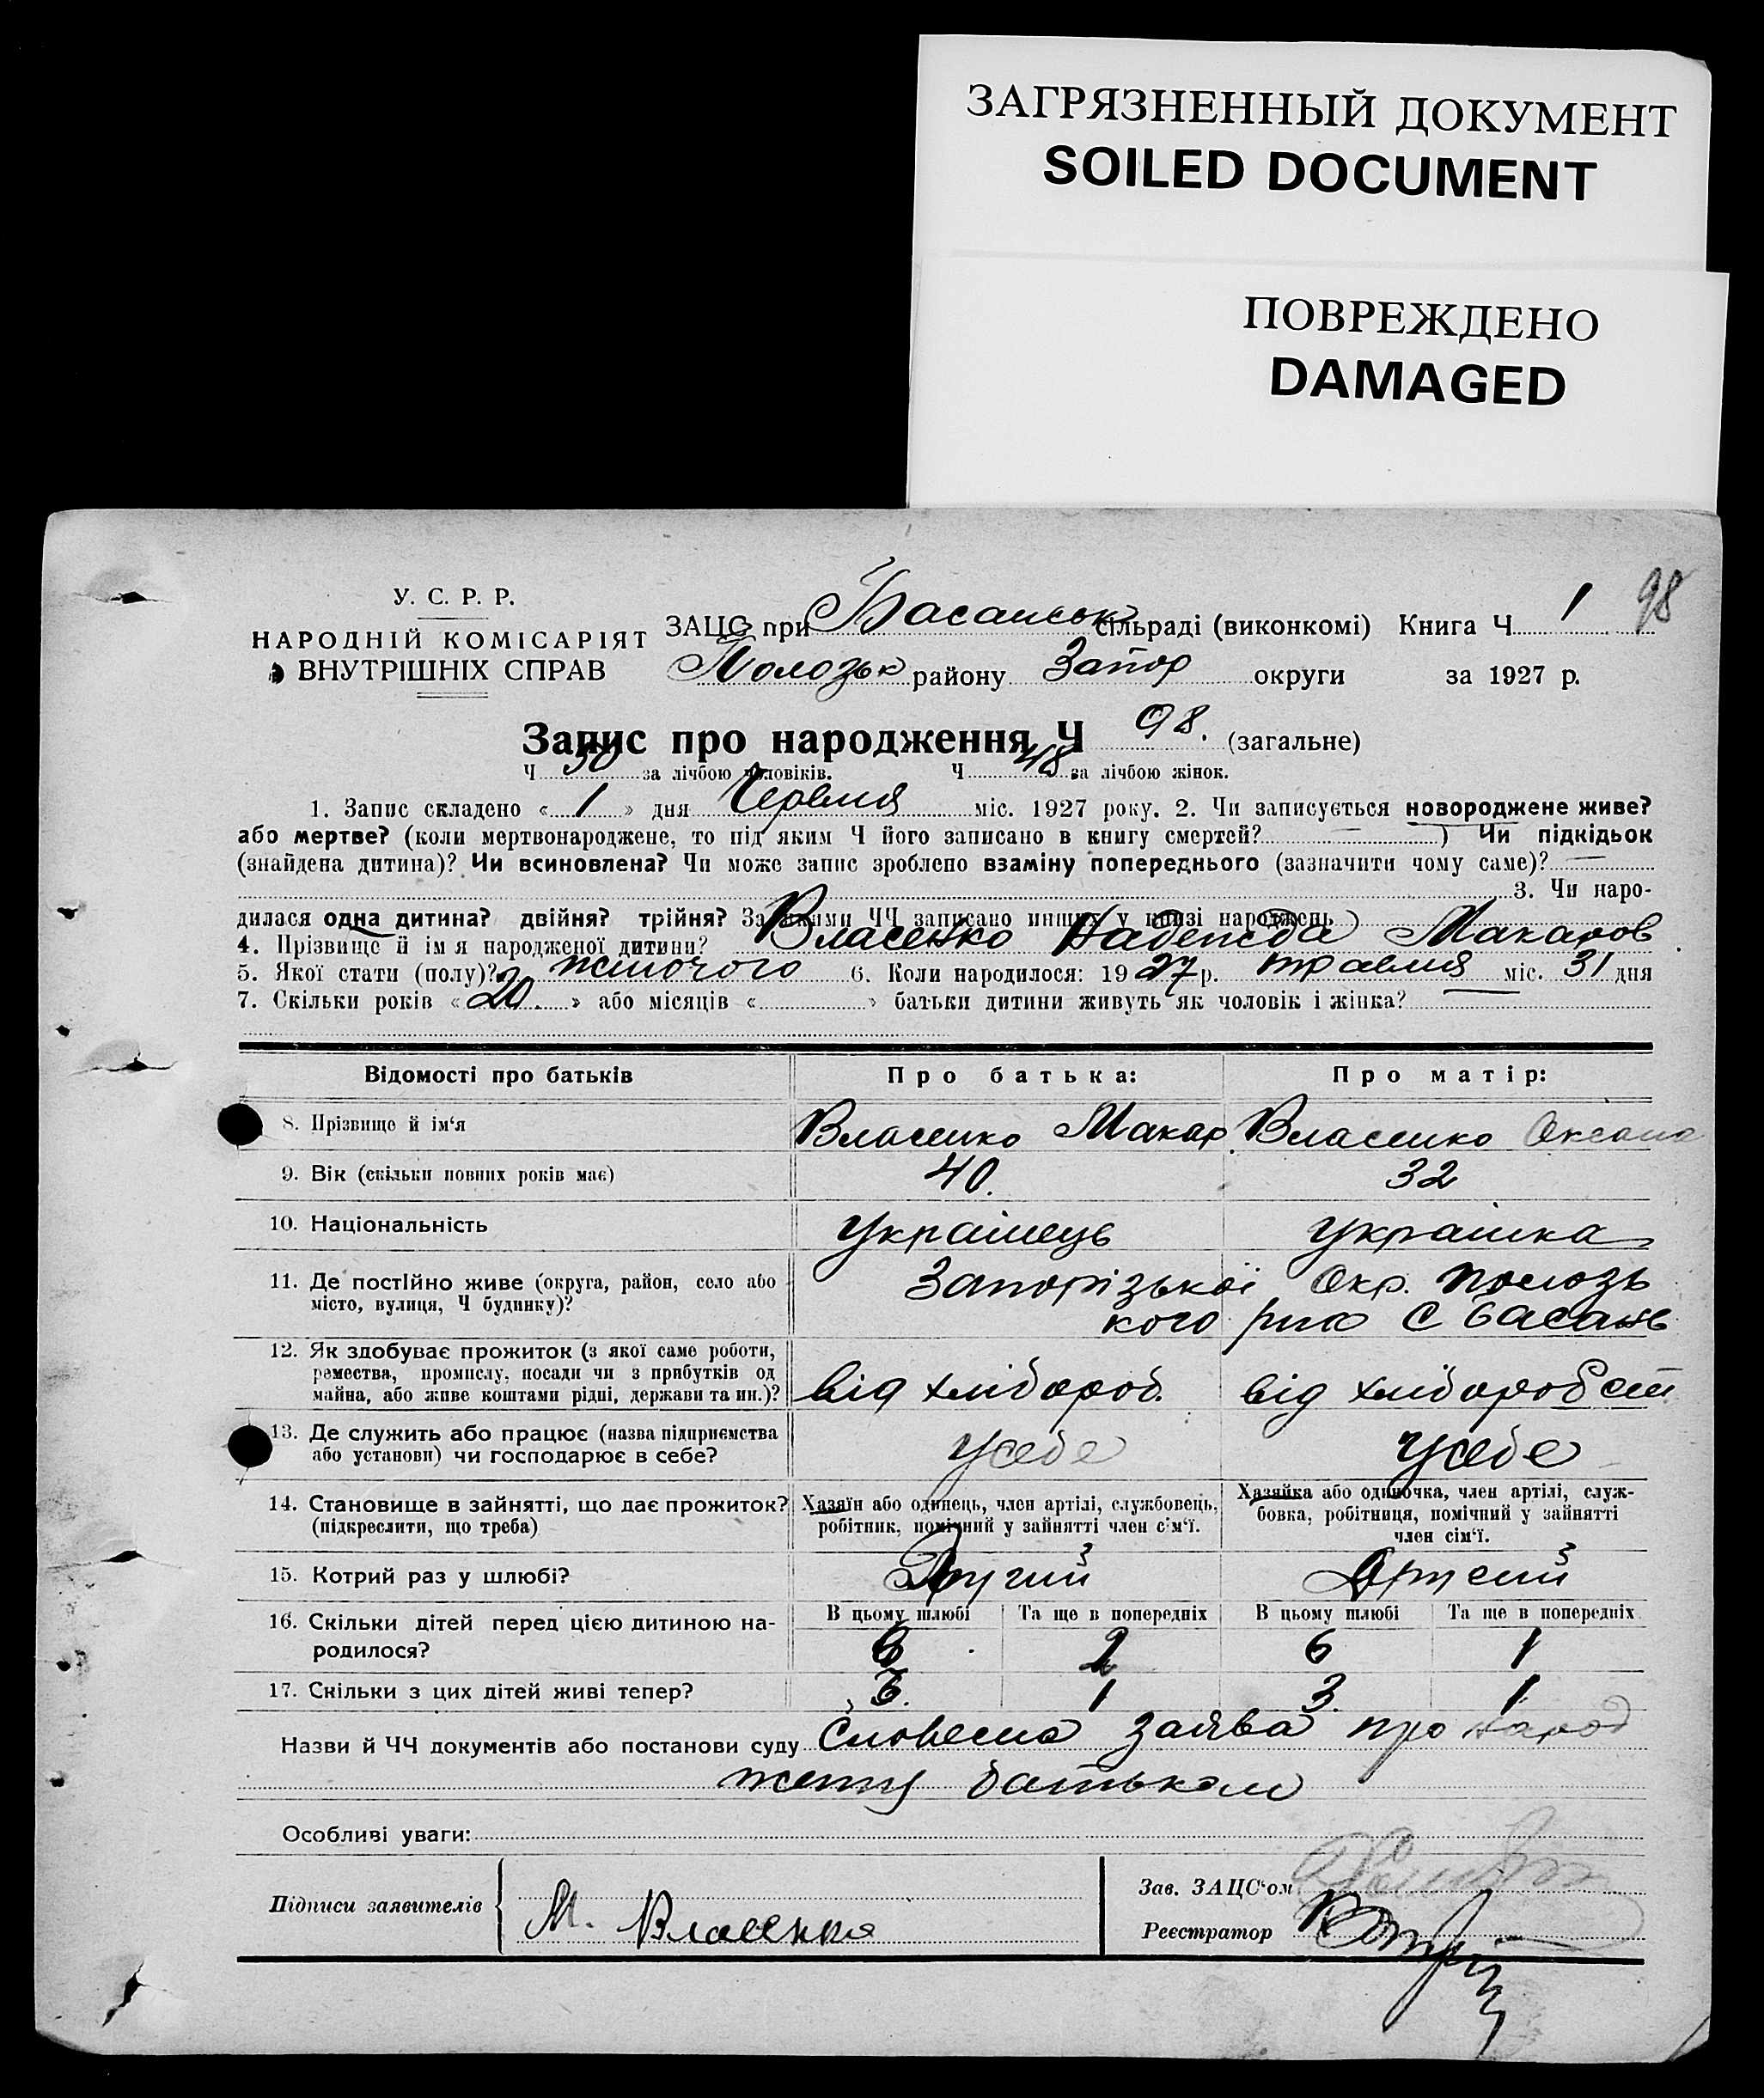 ЗАГРЯЗНЕННЫЙ ДОКУМЕНТ
SOILED DOCUMENT
ПОВРЕЖДЕНО
DAMAGED
98
У. С. Р. Р.
НАРОДНІЙ КОМІСАРІЯТ
ВНУТРІШНІХ СПРАВ
ЗАЦС при Басанськ сільраді (виконкомі) Книга Ч 1
Полозьк району Запор округи за 1927 р.
Запис про народження Ч 98. (загальне)
Ч 50 за лічбою чоловіків. Ч 48 за лічбою жінок.
1. Запис складено « 1 » дня Червня міс. 1927 року. 2. Чи записується новороджене живе?
або мертве? (коли мертвонароджене, то під яким Ч його записано в книгу смертей? — ) Чи підкідьок
(знайдена дитина)? Чи всиновлена? Чи може запис зроблено взаміну попереднього (зазначити чому саме)? —
3. Чи наро-
дилася одна дитина? двійня? трійня? За якими ЧЧ записано инших у книзі народжень
4. Прізвище й ім я народженої дитини? Власенко Надежда Макаров
5. Якої стати (полу)? жіночого 6. Коли народилося: 1927 р. травня міс. 31 дня
7. Скільки років « 20 » або місяців « » батьки дитини живуть як чоловік і жінка? —
Відомості про батьків Про батька: Про матір:
8. Прізвище й ім‘я Власенко Макар Власенко Оксана
9. Вік (скільки повних років має) 40. 32
10. Національність Українець Українка
11. Де постійно живе (округа, район, село або Запорізької Окр. Полозь
місто, вулиця, Ч будинку)? кого р-на С Басань
12. Як здобуває прожиток (з якої саме роботи,
ремества, промислу, посади чи з прибутків од
майна, або живе коштами рідні, держави та ин.)? від хлібороб. від хлібороб
13. Де служить або працює (назва підприємства
або установи) чи господарює в себе? У себе У себе
14. Становище в зайнятті, що дає прожиток? Хазяїн або одинець, член артілі, службовець, Хазяйка або одиночка, член артілі, служ-
(підкреслити, що треба) робітник, помічний у зайнятті член сім‘ї. бовка, робітниця, помічний у зайнятті
член сім‘ї.
15. Котрий раз у шлюбі? Другий Другий
16. Скільки дітей перед цією дитиною на- В цьому шлюбі Та ще в попередніх В цьому шлюбі Та ще в попередніх
родилося? 6 2 6 1
17. Скільки з цих дітей живі тепер? 3. 1 3. 1
Назви й ЧЧ документів або постанови суду Словесна заява про народ
женну батьком
Особливі уваги:
Підписи заявителів М. Власенко
Зав. ЗАЦС‘ом
Реєстратор